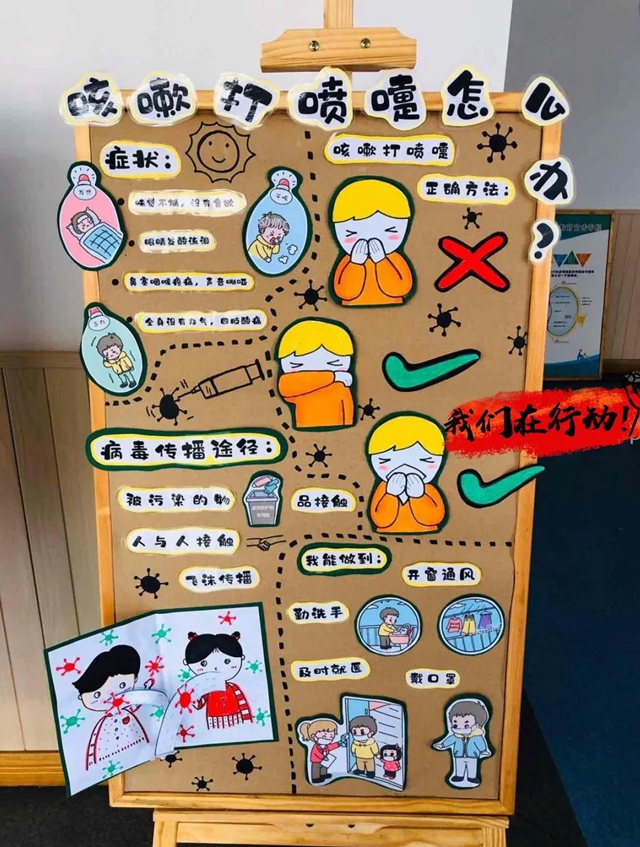 咳嗽打喷嚏怎么办?
症状:
发烧
干咳
味觉不够,没有食欲
眼睛发酸流泪
鼻塞咽喉疼痛,声音嘶哑
乏力
全身没有力气,四肢酸痛
咳嗽打喷嚏
正确方法:
我们在行动!
病毒传播途径:
被污染的物
品接触
人与人接触
飞沫传播
我能做到:
开窗通风
勤洗手
及时就医
戴口罩